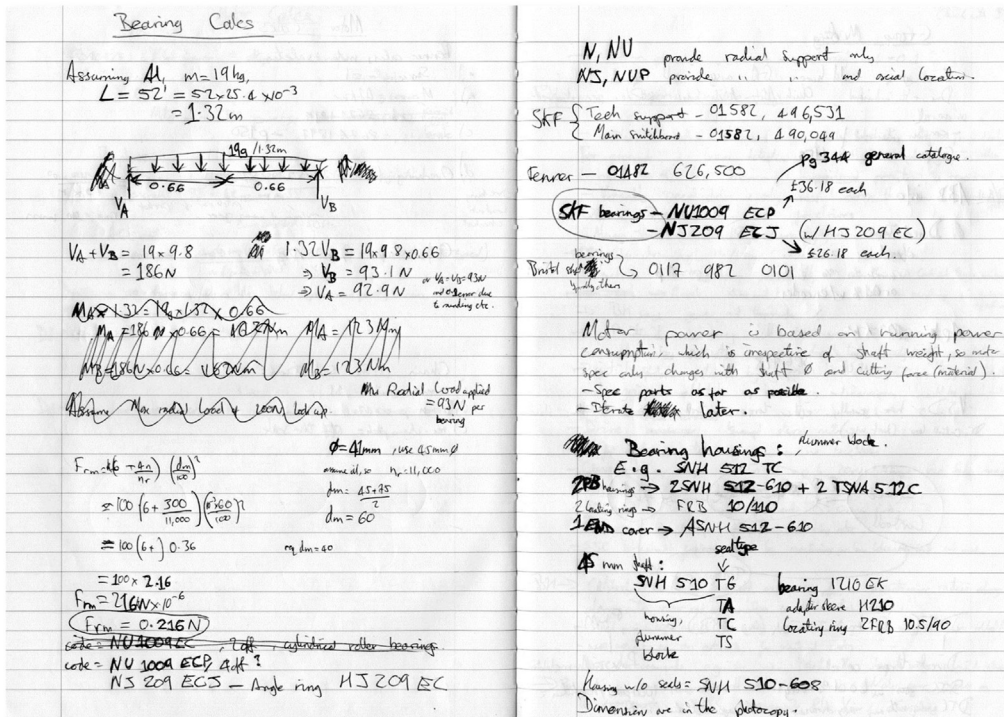 Bearing Calcs
Assuming Al, m = 19kg,
L = 52' = 52×25.4 ×10⁻³
= 1.32m
19g/1.32m
0.66 0.66
V_A V_B
V_A + V_B = 19×9.8
= 186N
1.32V_B = 19×9.8×0.66
⇒ V_B = 93.1N
⇒ V_A = 92.9N
or V_A = V_B = 93N
and error due
to rounding etc.
M_A × 1.32 = 19×1.32 × 0.66
M_A = 186N × 0.66 =
M_B = 186N × 0.66 =
Assume Max radial Load of 200N, look up
Max Radial Load applied
= 93N per
bearing
F_rm = k(6 + 4n/n_r) (dm/100)²
= 100 (6 + 300/11,000) (60/100)²
= 100 (6+) 0.36
= 100 × 2.16
F_rm = 216N×10⁻⁶
F_rm = 0.216N
Ø = 41mm, use 45mm Ø
assume oil, so n_r = 11,000
dm = 45+75/2
dm = 60
req dm = 40
code = NU1009EC, 2off, cylindrical roller bearings.
code = NU 1009 ECP, 4off?
NJ 209 ECJ – Angle ring HJ 209 EC
N, NU provide radial support only
NJ, NUP provide " " and axial location.
SKF { Tech support - 01582, 496,531
Main switchboard - 01582, 490,049
Fenner - 01482 626,500
pg 344 general catalogue.
£36.18 each
SKF bearings - NU1009 ECP
- NJ209 ECJ (w/ HJ209 EC)
£26.18 each.
bearings
Bristol
0117 982 0101
Motor power is based on running power
consumption, which is irrespective of shaft weight, so motor
spec only changes with shaft Ø and cutting force (material).
- Spec parts as far as possible.
- Iterate later.
Bearing housings: plummer block.
E.g. SNH 512 TC
2PB housings → 2SNH 512-610 + 2 TSNA 512C
2 locating rings → FRB 10/110
1 END cover → ASNH 512-610
seal type
45 mm shaft:
SNH 510 TG
TA
TC
TS
housing,
plummer
block
bearing 1210 EK
adapter sleeve H210
locating ring 2FRB 10.5/90
Housing w/o seals = SNH 510-608
Dimension are in the photocopy.